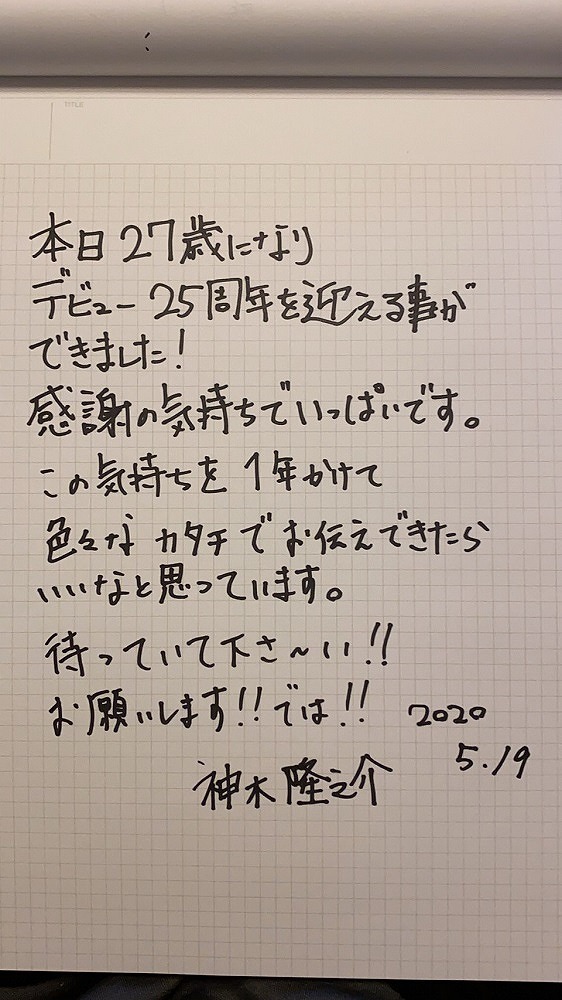 TITLE
本日27歳になり
デビュー25周年を迎える事が
できました！
感謝の気持ちでいっぱいです。
この気持ちを1年かけて
色々なカタチでお伝えできたら
いいなと思っています。
待っていて下さ〜い!!
お願いします!!では!!
2020
5.19
神木隆之介